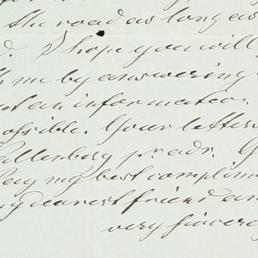 the road as long as
I hope you will
me by answering
an information
ossible. Your letters
allenberg pr. adr.
Pay my best complim
dearest friend an
very sincere